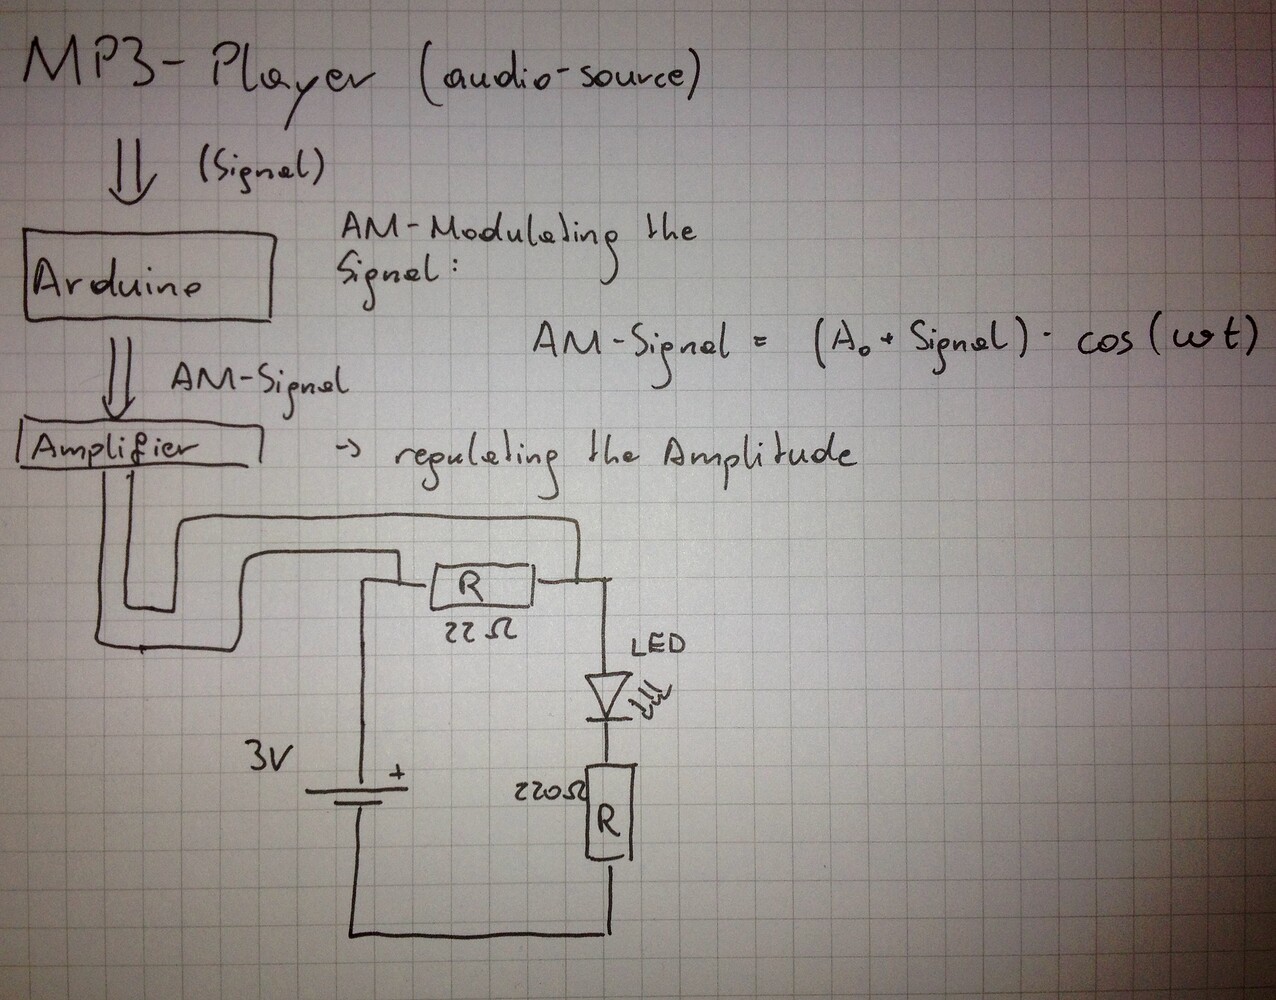 MP3-Player (audio-source)
(Signal)
Arduino
AM-Modulating the
Signal:
AM-Signal = (A₀ + Signal) · cos(ωt)
AM-Signal
Amplifier
→ regulating the Amplitude
R
22Ω
LED
3V
+
220Ω
R